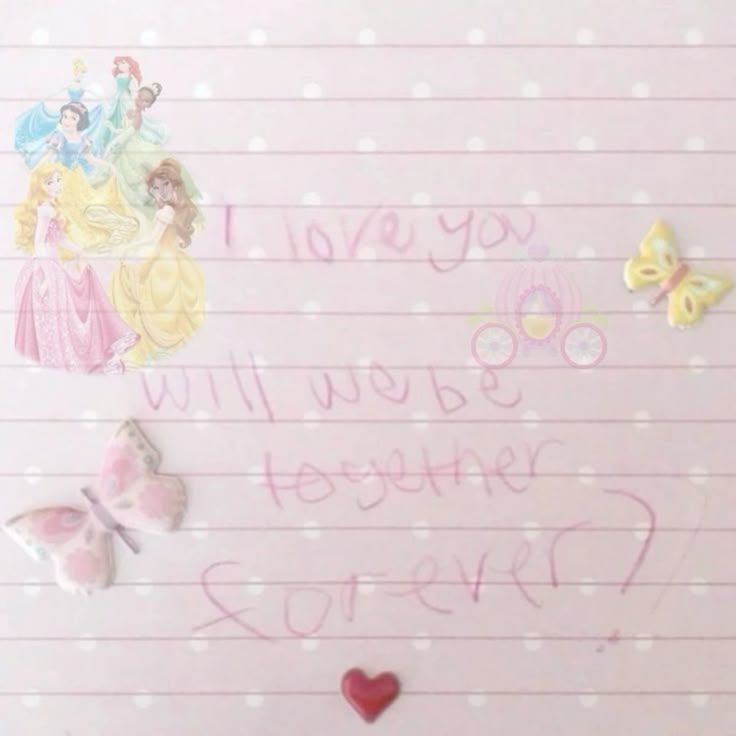 I love you
will we be
together
forever?